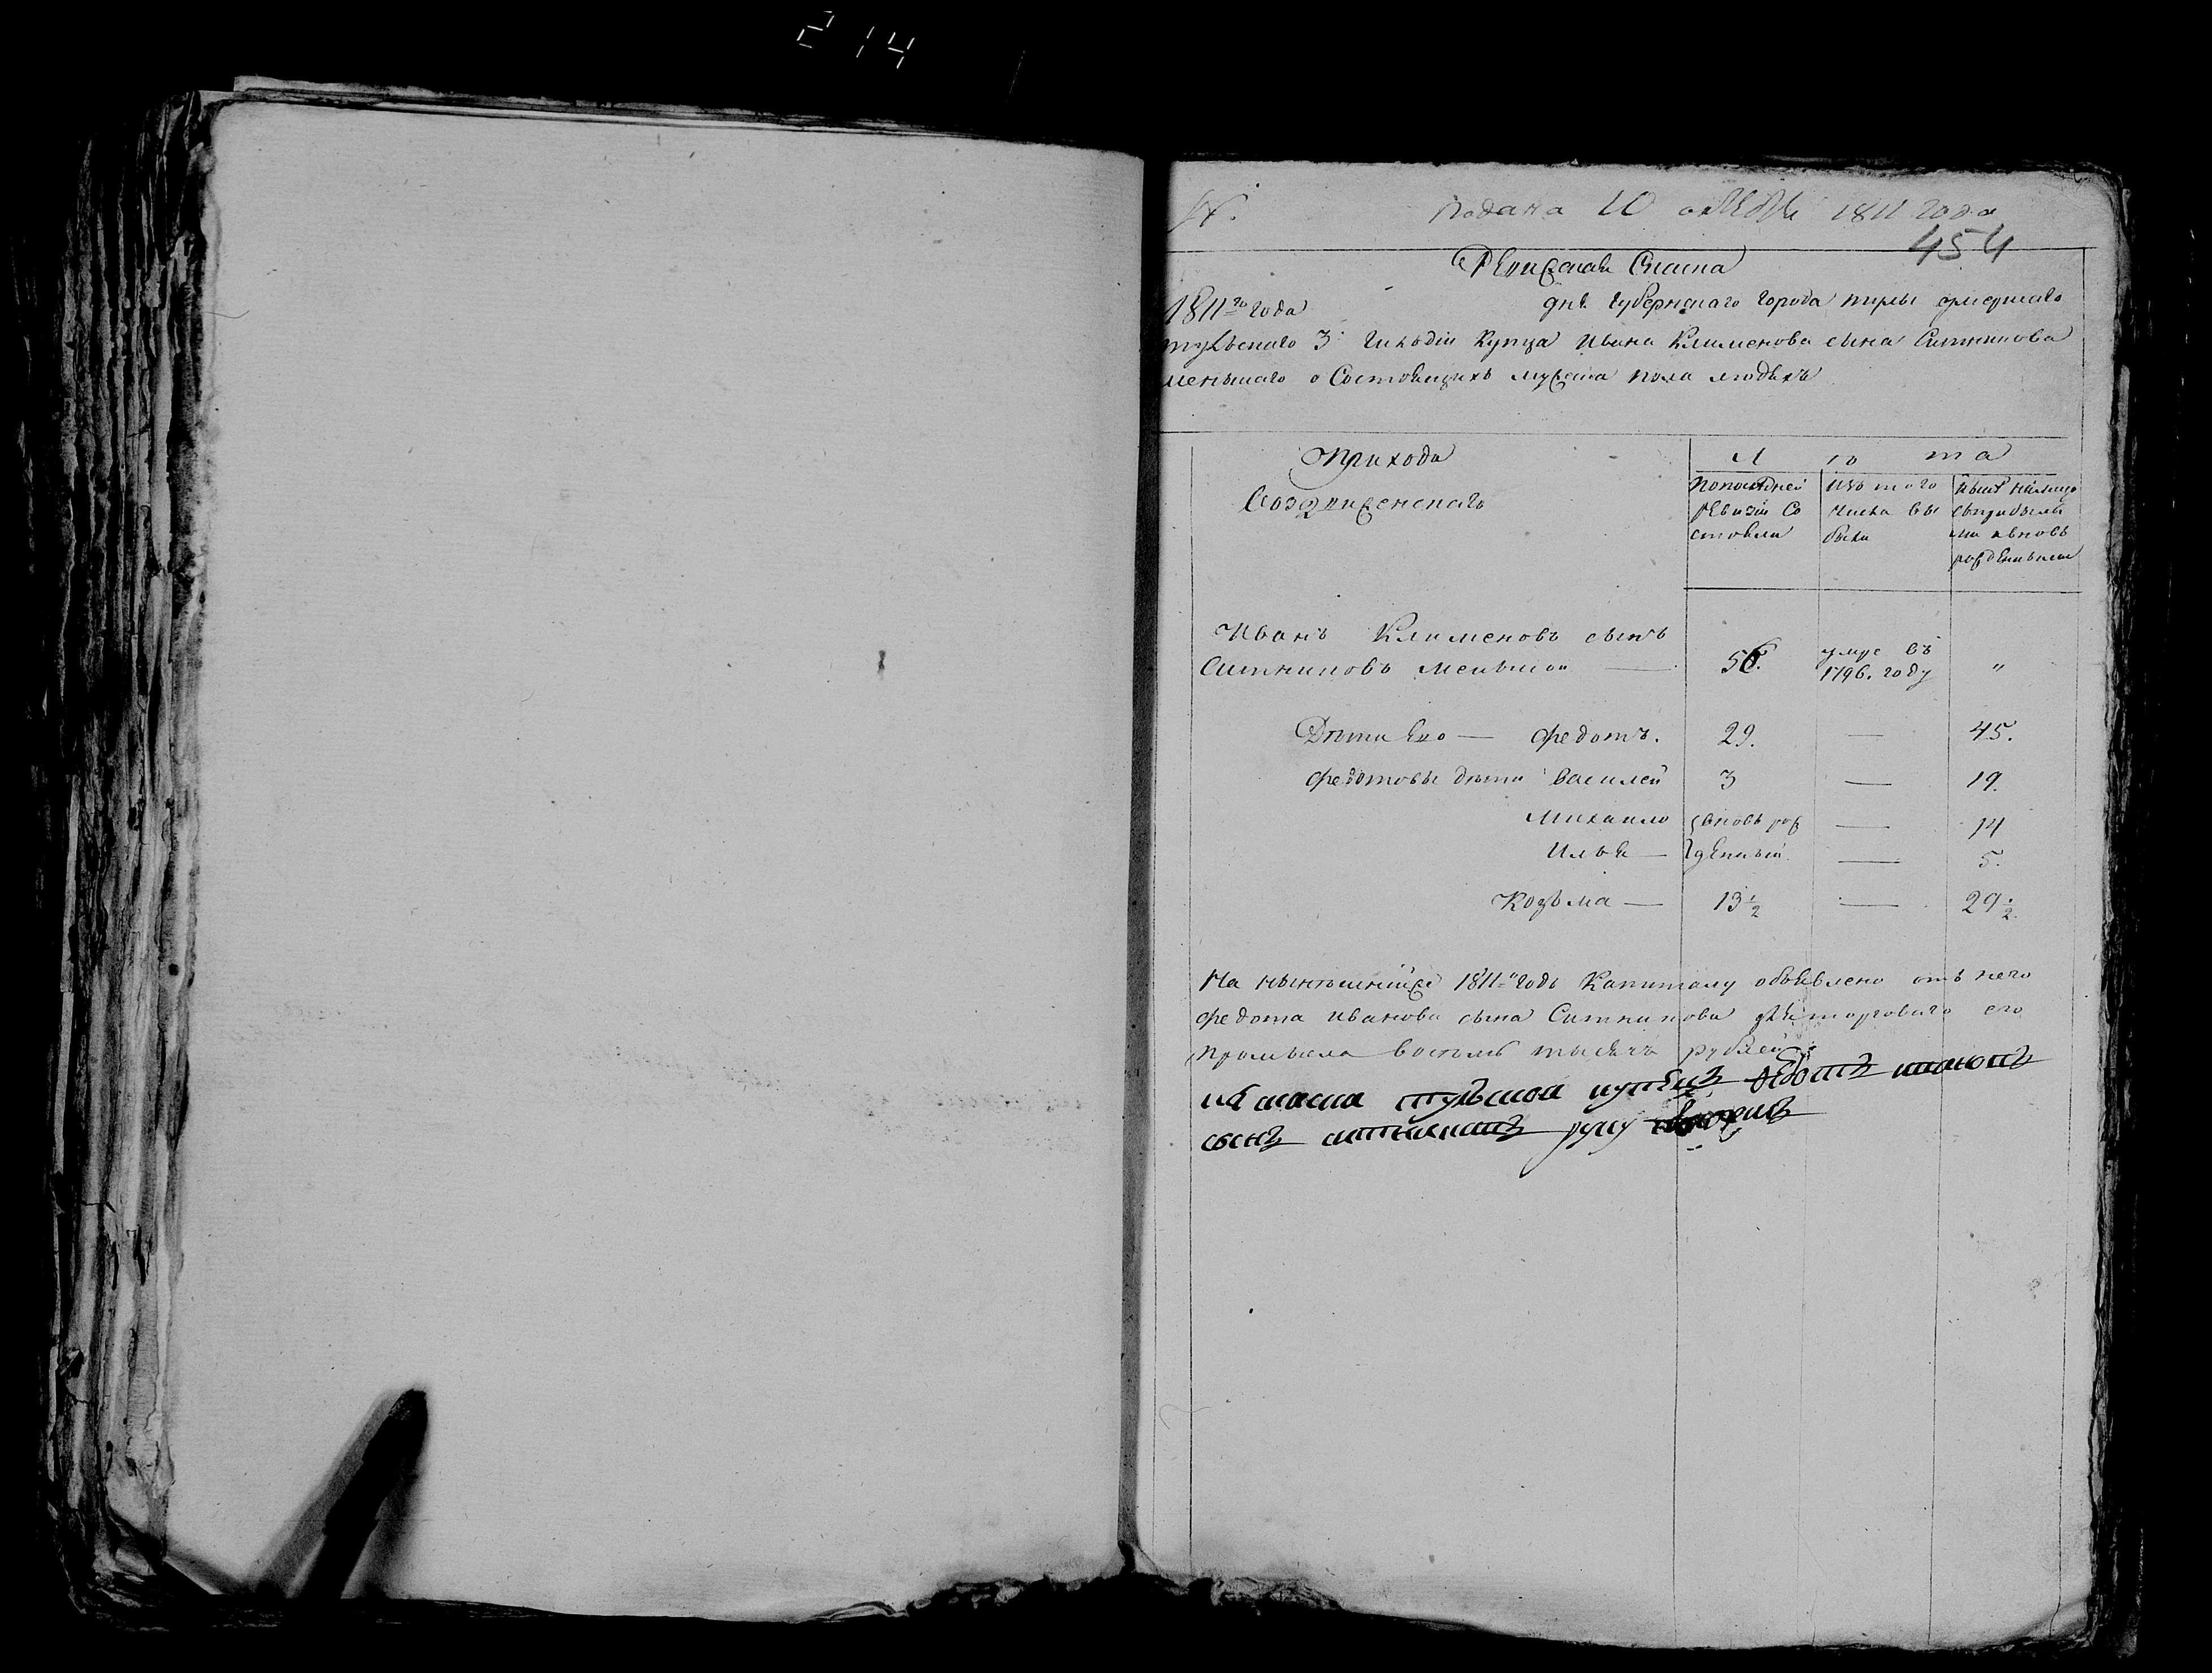 214
подана 10 октября 1811 года
454
Ревизская Сказка
1811го года дня Губернскаго города тулы умершаго
тульскаго 3й гильдіи Купца Ивана Клименова сына Ситникова
меньшаго о Состоящихъ мужеска пола людяхъ
прихода
Воздвиженскаго
Л ѣ та
Попоследней ревизіи Состояли
Изъ того числа выбыли
Ивана Клименовъ сынъ
Ситниковъ Меньшой — 56. умре въ 1796. году "
Дѣти Ево — Федотъ. 29. — 45.
Федотовы дѣти Василей 3 — 19.
Михаило вновь рож — 14
Илья — денный — 5.
Козьма — 13 1/2 — 29 1/2.
На нынѣшнійже 1811й годъ Капиталу объявлено отъ него
Федота Иванова сына Ситникова для торговаго его
промысла восемь тысячъ рублей
тульской купецъ Федотъ ивановъ
сынъ ситниковъ руку приложилъ